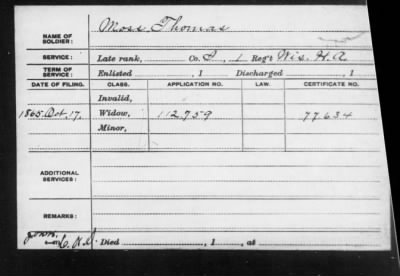 Moss Thomas
NAME OF SOLDIER:
SERVICE: Late rank, Co. , 1 Reg't Wis. H.A.
TERM OF SERVICE: Enlisted , 1 Discharged , 1
DATE OF FILING. CLASS. APPLICATION NO. LAW. CERTIFICATE NO.
Invalid,
1865. Oct. 17. Widow, 112.759 77634
Minor,
ADDITIONAL SERVICES:
REMARKS:
Died , 1 , at